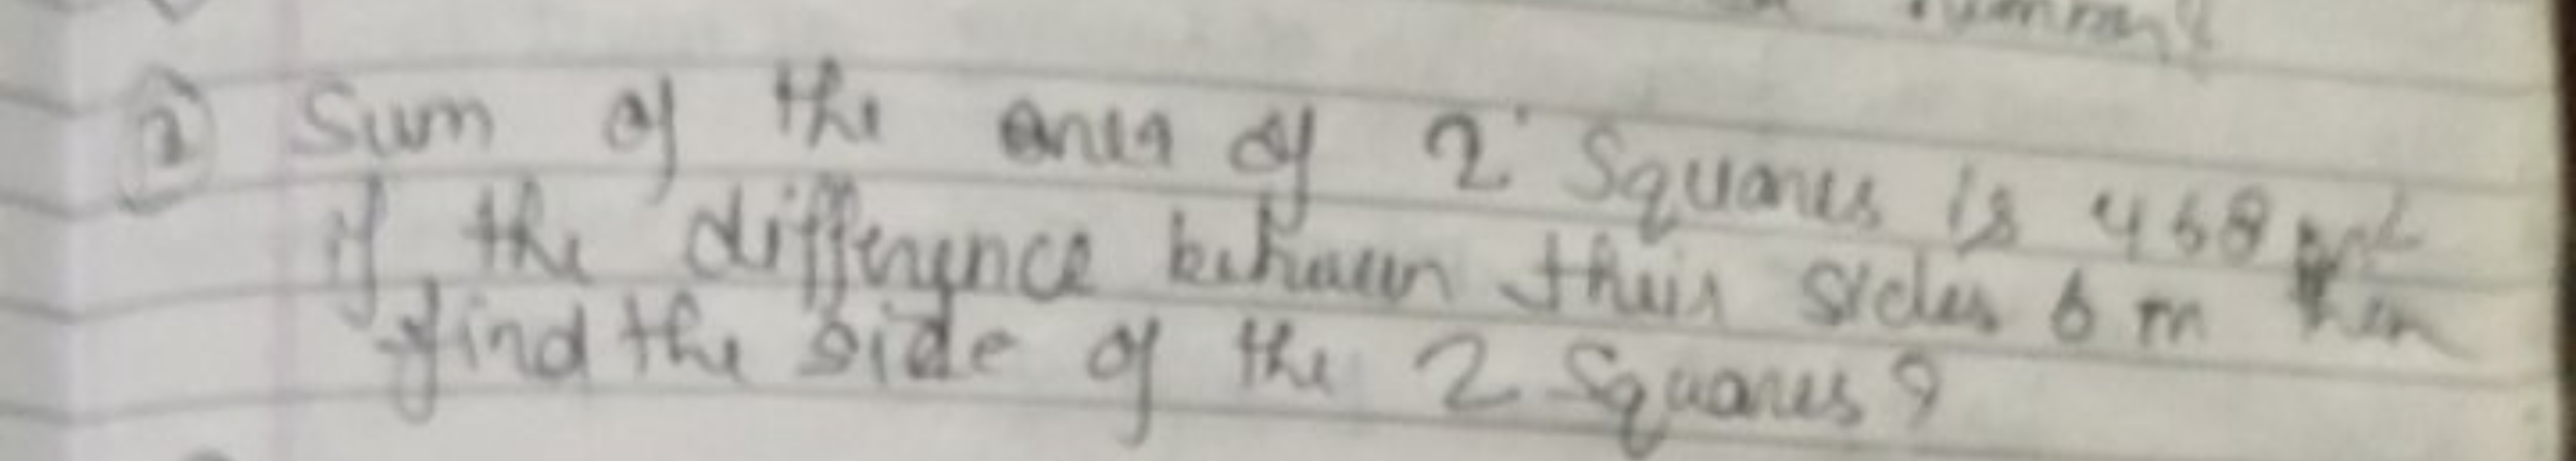 ② Sum of the area of 2 Squares is 468 m²
if the difference between their sides 6 m then
find the side of the 2 Squares?